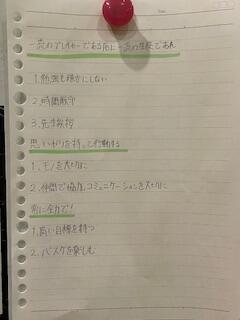 一流のプレイヤーである前に一流の生徒であれ
1. 勉強も疎かにしない
2. 時間厳守
3. 先生挨拶
思いやりを持って行動する
1. モノを大切に
2. 仲間で協力、コミュニケーションを大切に
常に全力で!
1. 高い目標を持つ
2. バスケを楽しむ